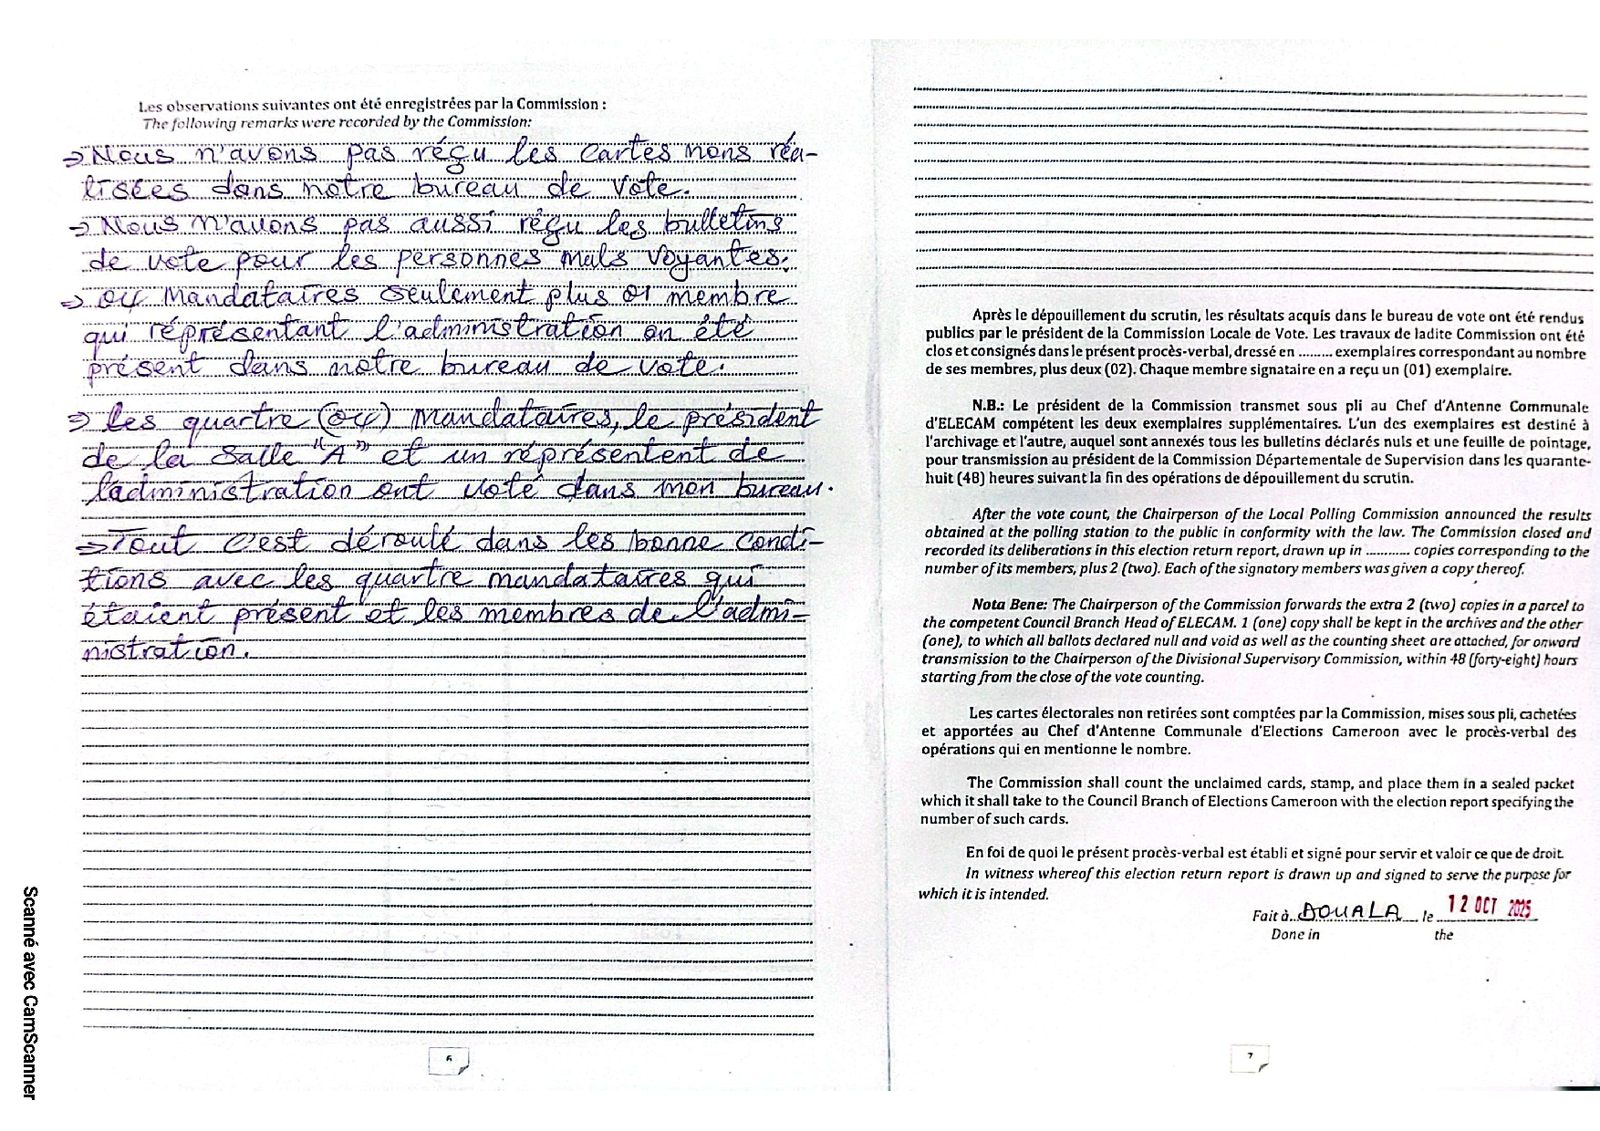 Les observations suivantes ont été enregistrées par la Commission :
The following remarks were recorded by the Commission:
⇒ Nous n'avons pas réçu les cartes nons réa-
lisées dans notre bureau de vote.
→ Nous n'avons pas aussi réçu les bulletins
de vote pour les personnes mals voyantes.
⇒ 04 Mandataires seulement plus 01 membre
qui réprésentant l'administration on été
présent dans notre bureau de vote.
⇒ Les quartre (04) Mandataires, le président
de la Salle "A" et un réprésentent de
l'administration ont voté dans mon bureau.
⇒ Tout c'est déroulé dans les bonne condi-
tions avec les quartre mandataires qui
étaient présent et les membres de l'admi-
nistration.
6
Après le dépouillement du scrutin, les résultats acquis dans le bureau de vote ont été rendus
publics par le président de la Commission Locale de Vote. Les travaux de ladite Commission ont été
clos et consignés dans le présent procès-verbal, dressé en ......... exemplaires correspondant au nombre
de ses membres, plus deux (02). Chaque membre signataire en a reçu un (01) exemplaire.
N.B.: Le président de la Commission transmet sous pli au Chef d'Antenne Communale
d'ELECAM compétent les deux exemplaires supplémentaires. L'un des exemplaires est destiné à
l'archivage et l'autre, auquel sont annexés tous les bulletins déclarés nuls et une feuille de pointage,
pour transmission au président de la Commission Départementale de Supervision dans les quarante-
huit (48) heures suivant la fin des opérations de dépouillement du scrutin.
After the vote count, the Chairperson of the Local Polling Commission announced the results
obtained at the polling station to the public in conformity with the law. The Commission closed and
recorded its deliberations in this election return report, drawn up in ........... copies corresponding to the
number of its members, plus 2 (two). Each of the signatory members was given a copy thereof.
Nota Bene: The Chairperson of the Commission forwards the extra 2 (two) copies in a parcel to
the competent Council Branch Head of ELECAM. 1 (one) copy shall be kept in the archives and the other
(one), to which all ballots declared null and void as well as the counting sheet are attached, for onward
transmission to the Chairperson of the Divisional Supervisory Commission, within 48 (forty-eight) hours
starting from the close of the vote counting.
Les cartes électorales non retirées sont comptées par la Commission, mises sous pli, cachetées
et apportées au Chef d'Antenne Communale d'Elections Cameroon avec le procès-verbal des
opérations qui en mentionne le nombre.
The Commission shall count the unclaimed cards, stamp, and place them in a sealed packet
which it shall take to the Council Branch of Elections Cameroon with the election report specifying the
number of such cards.
En foi de quoi le présent procès-verbal est établi et signé pour servir et valoir ce que de droit.
In witness whereof this election return report is drawn up and signed to serve the purpose for
which it is intended.
Fait à DOUALA le 12 OCT 2025
Done in the
7
Scanné avec CamScanner